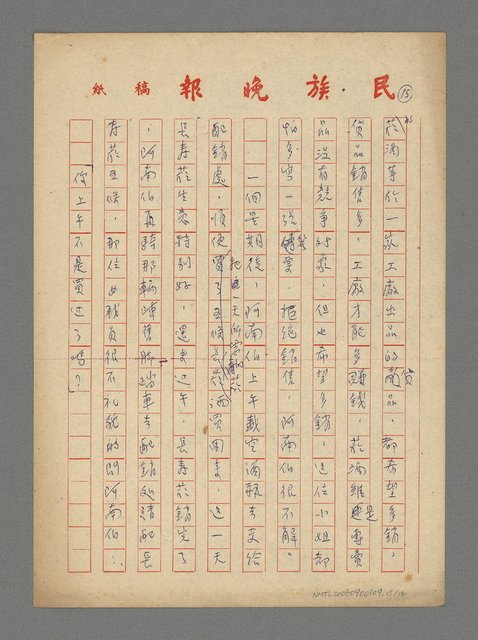 民族晚報 稿紙
15
菸酒等於一家工廠出品的商品，都希望多銷。
貨品銷售多，工廠才能多賺錢。菸酒雖是專賣
品沒有競爭對象，但也希望多銷，這位小姐卻
怕多寫一張傳票，拒絕銷售，阿南伯很不解。
一個星期後，阿南伯上午載空酒瓶去交給
配銷處，順便買了五條長壽菸酒買回來，這一天
長壽菸生意特別好，還未過午，長壽菸銷完了
，阿南伯再騎那輛陳舊腳踏車去配銷處請配長
壽菸五條，那位女職員很不禮貌的問阿南伯：
「你上午不是買過了嗎？」
NMTL20060900109, 15/16